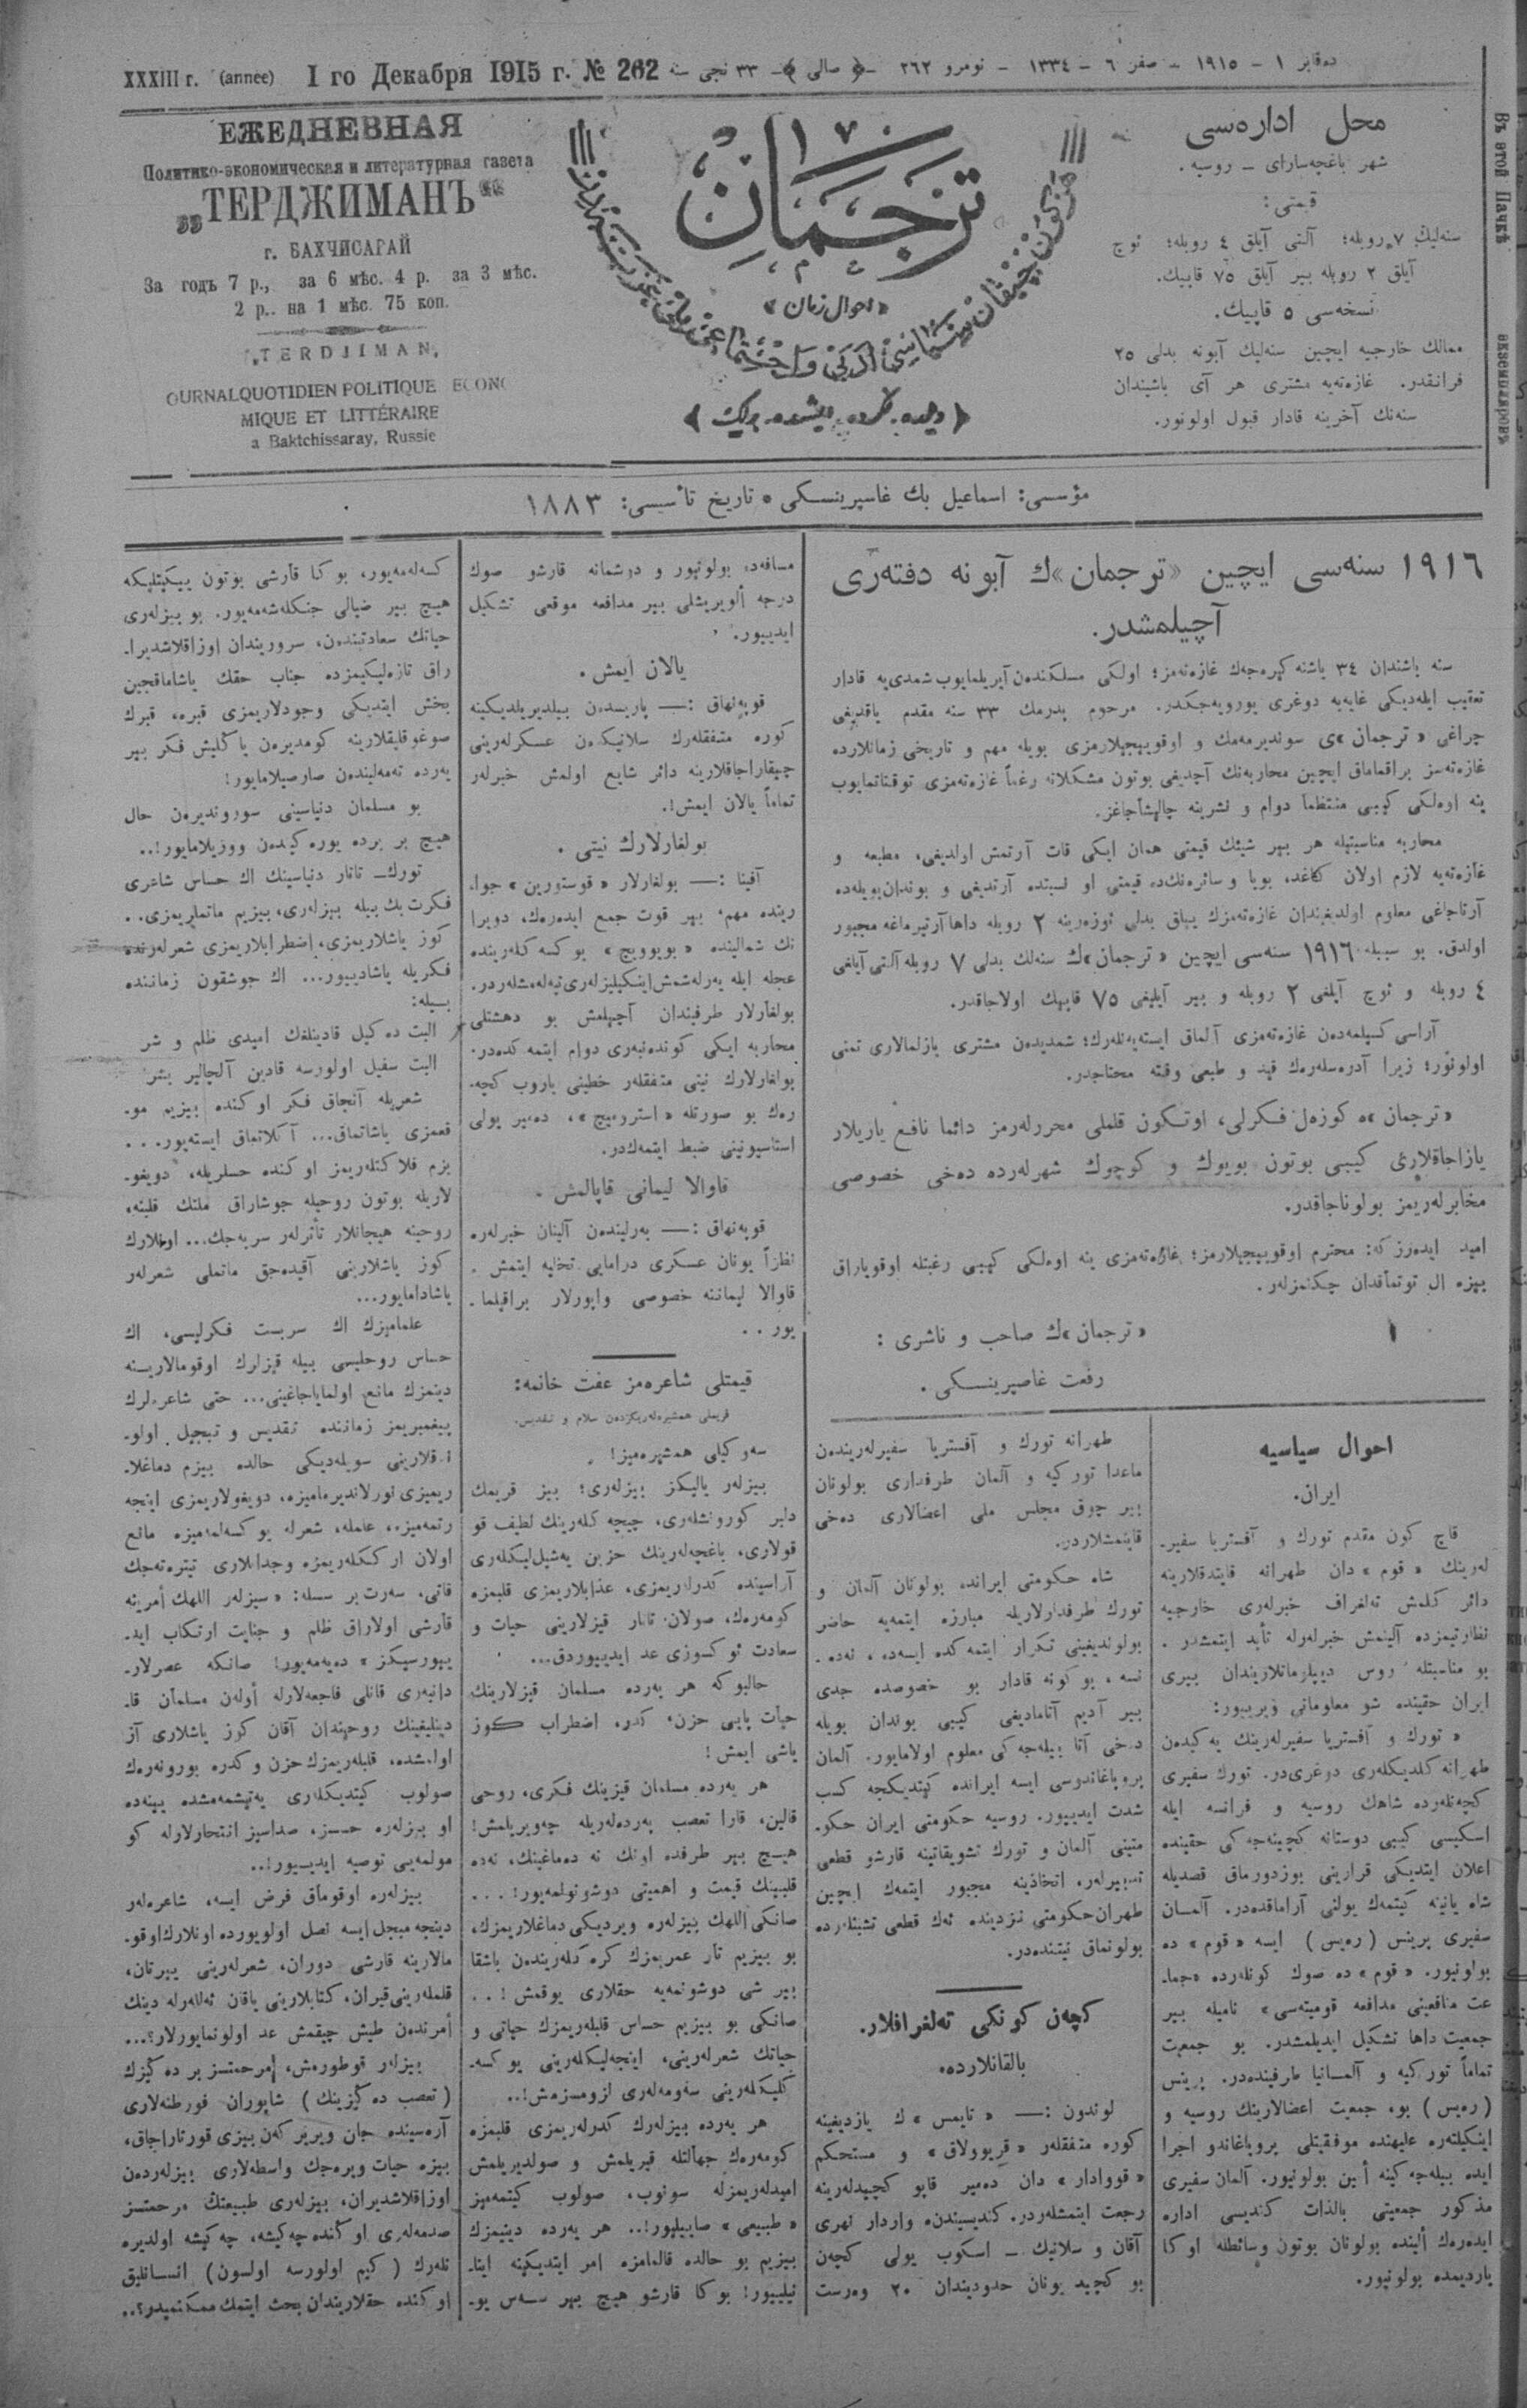 XXXIII г. (année) 1 го Декабря 1915 г. № 262 دەقابر ١ – ١٩١٥ – صفر ٦ – ١٣٣٤ – نومرو ٢٦٢ –﴿ صالی ﴾– ٣٣ نجی سنه
ЕЖЕДНЕВНАЯ
Политико-экономическая и литературная газета
„ТЕРДЖИМАНЪ“
г. БАХЧИСАРАЙ
За годъ 7 р., за 6 мѣс. 4 р. за 3 мѣс.
2 р.. на 1 мѣс. 75 коп.
„TERDJIMAN„
OURNAL QUOTIDIEN POLITIQUE ECONO
MIQUE ET LITTÉRAIRE
a Baktchissaray, Russie
ترجمان
«احوال زمان»
﴿ دیلده، فکرده، ایشده، برلیك ﴾
محل اداره‌سی
شهر باغچه‌سارای – روسیه.
قیمتی:
سنه‌لیك ٧ روبله؛ آلتی آیلق ٤ روبله؛ ئوچ
آیلق ٢ روبله بیر آیلق ٧٥ قاپیك.
نسخه‌سی ٥ قاپیك.
ممالك خارجیه ایچین سنه‌لیك آبونه بدلی ٢٥
فرانقدر. غازه‌ته‌یه مشتری هر آی باشیندان
سنه‌نك آخرینه قادار قبول اولونور.
Въ этой Пачкѣ
экземпляровъ
مؤسسی: اسماعیل بك غاسپرینسکی • تاریخ تأسیسی: ١٨٨٣
١٩١٦ سنه‌سی ایچین «ترجمان»ك آبونه دفته‌ری
آچیلمشدر.
سنه باشندان ٣٤ یاشنه گیره‌جك غازه‌ته‌مز؛ اولکی مسلکنده‌ن آیریلمایوب شمدی‌یه قادار
تعقیب ایله‌دیکی غایه‌یه دوغری یورویه‌جکدر. مرحوم پدرمك ٣٣ سنه مقدم یاقدیغی
چراغی «ترجمان»ی سوندیرمه‌مك و اوقویجیلارمزی بویله مهم و تاریخی زمانلارده
غازه‌ته‌سز براقماماق ایچین محاربه‌نك آچدیغی بوتون مشکلاته رغماً غازه‌ته‌مزی توقتاتمایوب
ینه اوه‌لکی کیبی منتظماً دوام و نشرینه چالیشاجاغز.
محاربه مناسبتیله هر بیر شیئك قیمتی همان ایکی قات آرتمش اولدیغی، مطبعه و
غازه‌ته‌یه لازم اولان کاغد، بویا و سائره‌نك‌ده قیمتی او نسبتده آرتدیغی و بوندان‌بویله‌ده
آرتاجاغی معلوم اولدیغندان غازه‌ته‌مزك ییلق بدلی ئوزه‌رینه ٢ روبله داها آرتیرماغه مجبور
اولدق. بو سببله ١٩١٦ سنه‌سی ایچین «ترجمان»ك سنه‌لك بدلی ٧ روبله آلتی آیلغی
٤ روبله و ئوچ آیلغی ٢ روبله و بیر آیلیغی ٧٥ قاپیك اولاجاقدر.
آراسی کسیلمه‌دن غازه‌ته‌مزی آلماق ایسته‌یه‌نله‌رك؛ شمدیده‌ن مشتری یازلمالاری تمنی
اولونور؛ زیرا آدره‌سله‌رك قید و طبعی وقته محتاجدر.
«ترجمان»ه کوزه‌ل فکرلی، اوتکون قلملی محررله‌رمز دائما نافع یازیلار
یازاجاقلاری کیبی بوتون بویوك و کوچوك شهرله‌رده ده‌خی خصوصی
مخابرله‌ریمز بولوناجاقدر.
امید ایده‌رز که: محترم اوقویجیلارمز؛ غازه‌ته‌مزی ینه اوه‌لکی کیبی رغبتله اوقویاراق
بیزه ال توتماقدان چکنمزله‌ر.
«ترجمان»ك صاحب و ناشری :
رفعت غاصپرینسکی .
احوال سیاسیه
ایران.
قاچ کون مقدم تورك و آفستریا سفیر-
له‌رینك «قوم»دان طهرانه قایتدقلارینه
دائر کلمش تلغراف خبرله‌ری خارجیه
نظارتیمزده آلینمش خبرله‌رله تأیید ایتمشدر .
بو مناسبتله روس دیپلوماتلاریندان بیری
ایران حقینده شو معلوماتی ویرییور:
«تورك و آفستریا سفیرله‌رینك یه‌کیده‌ن
طهرانه کلدیکله‌ری دوغری‌در. تورك سفیری
اعلان ایتدیکی قرارینی بوزدورماق قصدیله
سفیری پرینس (ره‌یس) ایسه «قوم»ده
بولونیور. «قوم»ده صوك کونله‌رده «جما-
عت منافعینی مدافعه قومیته‌سی» نامیله بیر
جمعیت داها تشکیل ایدیلمشدر. بو جمعیت
تماماً تورکیه و آلمانیا طرفینده‌در. پرینس
(ره‌یس) بو، جمعیت اعضالارینك روسیه و
انکیلتره علیهنده موفقیتلی پروپاغاندو اجرا
ایده بیله‌جه‌کینه أمین بولونیور. آلمان سفیری
مذکور جمعیتی بالذات کندیسی اداره
ایده‌رك ألینده بولونان بوتون وسائطله اوکا
یاردیمده بولونیور.
طهرانه تورك و آفستریا سفیرله‌ریندەن
ماعدا تورکیه و آلمان طرفداری بولونان
بیر چوق مجلس ملی اعضالاری ده‌خی
قایتمشلاردر.
شاه حکومتی ایرانده بولونان آلمان و
تورك طرفدارلاریله مبارزه ایتمه‌یه حاضر
بیر آدیم آتمادیغی کیبی بوندان بویله
دخی آتا بیله‌جه‌کی معلوم اولامایور. آلمان
پروپاغاندوسی ایسه ایرانده کیتدیکجه کسب
شدت ایدییور. روسیه حکومتی ایران حکو-
متینی آلمان و تورك تشویقاتینه قارشو قطعی
تدبیرله‌ر، اتخاذینه مجبور ایتمه‌ك ایچین
طهران حکومتی نزدینده ئه‌ك قطعی تشبثله‌رده
بولونماق نیتنده‌در.
کچه‌ن کونکی ته‌لغرافلار.
بالقانلارده.
لوندون :— «تایمس»ك یازدیغینه
کوره متفقله‌ر «قریوولاق» و مستحکم
«قووادار»دان ده‌میر قاپو کچیدله‌رینه
رجعت ایتمشله‌ردر. کندیسیندن، واردار نهری
آقان و سلانیك – اسکوب یولی کچه‌ن
بو کچید یونان حدودیندان ٢٠ وه‌رست
مسافه‌ده بولونیور و دوشمانه قارشو صوك
درجه ألویریشلی بیر مدافعه موقعی تشکیل
ایدییور.
یالان ایمش.
قوپه‌نهاق :— پاریسدن بیلدیریلدیکینه
کوره متفقله‌رك سلانیکدن عسکرله‌رینی
چیقاراجاقلارینه دائر شایع اولمش خبرله‌ر
تماماً یالان ایمش!.
بولغارلارك نیتی .
آفینا :— بولغارلار «قوستورین» جوا-
رینده مهم، بیر قوت جمع ایده‌رك، دویرا
بولغارلار طرفیندان آچیلمش بو دهشتلی
محاربه ایکی کونده‌نبه‌ری دوام ایتمه‌کده‌در.
بولغارلارك نیتی متفقله‌ر خطینی یاروب کچه-
ره‌ك بو صورتله «استرومیچ»، ده‌میر یولی
استاسیونینی ضبط ایتمه‌ك‌در.
قاوالا لیمانی قاپالمش .
قوپه‌نهاق :— به‌رلینده‌ن آلینان خبرله‌ره
نظراً یونان عسکری درامایی تخلیه ایتمش .
قاوالا لیماننه خصوصی واپورلار براقیلما-
یور . .
قیمتلی شاعره‌مز عفت خانمه:
قریملی همشیره‌له‌ریکزدەن سلام و تقدیس.
سه‌وکیلی همشیره‌میز!
بیزله‌ر یالیکز بیزله‌ری؛ بیز قریمك
قولاری، باغچه‌له‌رینك حزین یه‌شیل‌لیکله‌ری
آراسینده کدرله‌ریمزی، عذابلاریمزی قلبمزه
کومه‌ره‌ك، صولان تاتار قیزلارینی حیات و
سعادت ئوکسوزی عد ایدییوردق...
حالبوکه هر یه‌رده مسلمان قیزلارینك
حیات پایی حزن، کدر، اضطراب کوز
یاشی ایمش!
هر یه‌رده مسلمان قیزینك فکری، روحی
قالین، قارا تعصب په‌رده‌له‌ریله چه‌وریلمش!
هیچ بیر طرفده اونك نه ده‌ماغینك، نه‌ده
قلبینك قیمت و اهمیتی دوشونولمه‌یور! . . .
صانکی اللهك بیزله‌ره ویردیکی دماغلاریمزك،
بیر شی دوشونمه‌یه حقلاری یوقمش ! . .
صانکی بو بیزیم حساس قلبله‌ریمزك حیاتی و
حیاتك شعرله‌رینی، اینجه‌لیکله‌رینی یوکسه-
کلیکله‌رینی سه‌ومه‌له‌ری لزومسزمش!..
هر یه‌رده بیزله‌رك کدرله‌ریمزی قلبمزه
کومه‌ره‌ك جهالتله قیریلمش و صولدیریلمش
امیدله‌ریمزله سونوب، صولوب کیتمه‌میز
«طبیعی» صاییلیور!.. هر یه‌رده دینیمزك
بیزیم بو حالده قالمامزه امر ایتدیکینه اینا-
نیلییور! بوکا قارشو هیچ بیر سه‌س یو-
کسه‌له‌مه‌یور، بوکا قارشی بوتون بیکیتلیکه
هیچ بیر ضیالی جنکله‌شه‌مه‌یور. بو بیزله‌ری
حیاتك سعادتیندەن، سروریندان اوزاقلاشدیرا-
راق تازه‌لیکیمزده جناب حقك یاشاماقچین
بخش ایتدیکی وجودلاریمزی قبره، قبرك
صوغوقلیقلارینه کومدیرەن یاکلیش فکر بیر
یه‌رده ته‌مه‌لینده‌ن صارصیلامایور!
بو مسلمان دنیاسینی سوروندیره‌ن حال
هیچ بر یرده یوره‌کیده‌ن ووزیلامایور!..
تورك– تاتار دنیاسینك اك حساس شاعری
فکرت بك بیله بیزله‌ری، بیزیم ماتمالریمزی..
کوز یاشلاریمزی، اضطرابلاریمزی شعرله‌رنده
فکریله یاشادییور... اك جوشقون زماننده
بیله:
البت ده‌کیل قادینلغك امیدی ظلم و شر
البت سفیل اولورسه قادین آلچالیر بشر
شعریله آنجاق فکر اوکنده بیزیم مو-
قعمزی یاشاتماق... آکلاتماق ایسته‌یور. . .
لاریله بوتون روحیله جوشاراق ملتك قلبنه،
روحینه هیجانلار تأثرله‌ر سرپه‌جك... اونلارك
کوز یاشلارینی آقیده‌جق ماتملی شعرله‌ر
یاشادامایور...
علمامیزك اك سربست فکرلیسی، اك
حساس روحلیسی بیله قیزلرك اوقومالارینه
دینمزك مانع اولمایاجاغینی... حتی شاعره‌لرك
پیغمبریمز زماننده تقدیس و تبجیل اولو-
اولان ارککله‌ریمزه وجدانلاری تیتره‌ته‌جك
قاتی، سه‌رت بر سسله: «سیزله‌ر اللهك أمرینه
قارشی اولاراق ظلم و جنایت ارتکاب اید-
ییورسیکز» ده‌یه‌مه‌یور! صانکه عصرلار-
دانبه‌ری قانلی فاجعه‌لارله أوله‌ن مسلمان قا-
دینلیغینك روحیندان آقان کوز یاشلاری آز
اولمشده، قلبله‌ریمزك حزن و کدره بورونه‌ره‌ك
صولوب کیتدیکله‌ری یه‌تیشمه‌مشده یینه‌ده
او بیزله‌ره حسسز، صداسیز انتحارلارله کو
مولمه‌یی توصیه ایدییور!..
بیزله‌ره اوقوماق فرض ایسه، شاعره‌له‌ر
دینجه مبجل ایسه نصل اولویورده اونلارك اوقو-
مالارینه قارشی دوران، شعرله‌رینی ییرتان،
قلمله‌رینی قیران، کتابلارینی یاقان ئه‌للەرله دینك
أمرنده‌ن طیش چیقمش عد اولونمایورلار؟...
(تعصب ده‌کیزینك) شاپوران فورطنه‌لاری
بیزه حیات ویره‌جك واسطه‌لاری بیزله‌رده‌ن
اوزاقلاشدیران، بیزله‌ری طبیعتك مرحمتسز
صدمه‌له‌ری اوکنده چه‌کیشه، چه‌کیشه اولدیره
نله‌رك (کیم اولورسه اولسون) انسانلیق
اوکنده حقلاریندان بحث ایتمك ممکنمیدر؟..